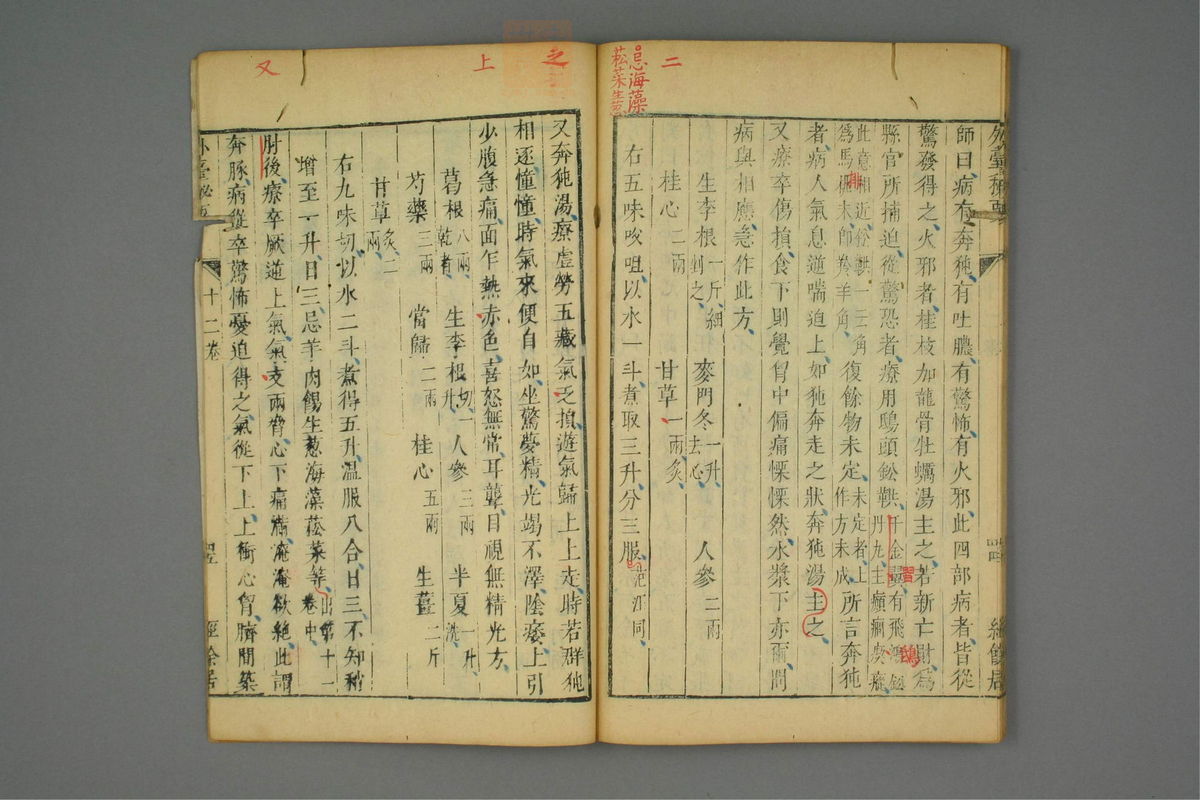 忌海藻
菘菜生葱
二
外臺秘要
師曰病有奔㹠有吐膿有驚怖有火邪此四部病者皆從
驚發得之火邪者桂枝加龍骨牡蠣湯主之若新亡財爲
縣官所捕迫從驚恐者療用鴟頭鈆鞅千金翼有飛鴻鈆丹丸主癲癇瘈瘲
此意相近俗鞅一云角爲馬鞅未師羚羊角復餘物未定未定者上作方未成所言奔㹠
者病人氣息逆喘迫上如㹠奔走之狀奔㹠湯主之
又療卒傷損食下則覺胷中偏痛慄慄然水漿下亦爾問
病與相應急作此方
生李根一斤細剉之 麥門冬一升去心 人參二兩
桂心二兩 甘草一兩炙
右五味㕮咀以水一斗煮取三升分三服范汪同
經餘居
之
上
又
又奔㹠湯療虚勞五藏氣乏損遊氣歸上上走時若群㹠
相逐憧憧時氣來便自如坐驚夢精光竭不澤陰痿上引
少腹急痛面乍熱赤色喜怒無常耳聾目視無精光方
葛根八兩乾者 生李根切一升 人參三兩 半夏一升洗
芍藥三兩 當歸二兩 桂心五兩 生薑二斤
甘草炙二兩
右九味切以水二斗煮得五升温服八合日三不知稍
增至一升日三忌羊肉餳生葱海藻菘菜等出第十一卷中
肘後療卒厥逆上氣氣支兩脅心下痛滿淹淹欲絶此謂
奔豚病從卒驚怖憂迫得之氣從下上上衝心胷臍間築
外臺秘要
十二卷
經餘居